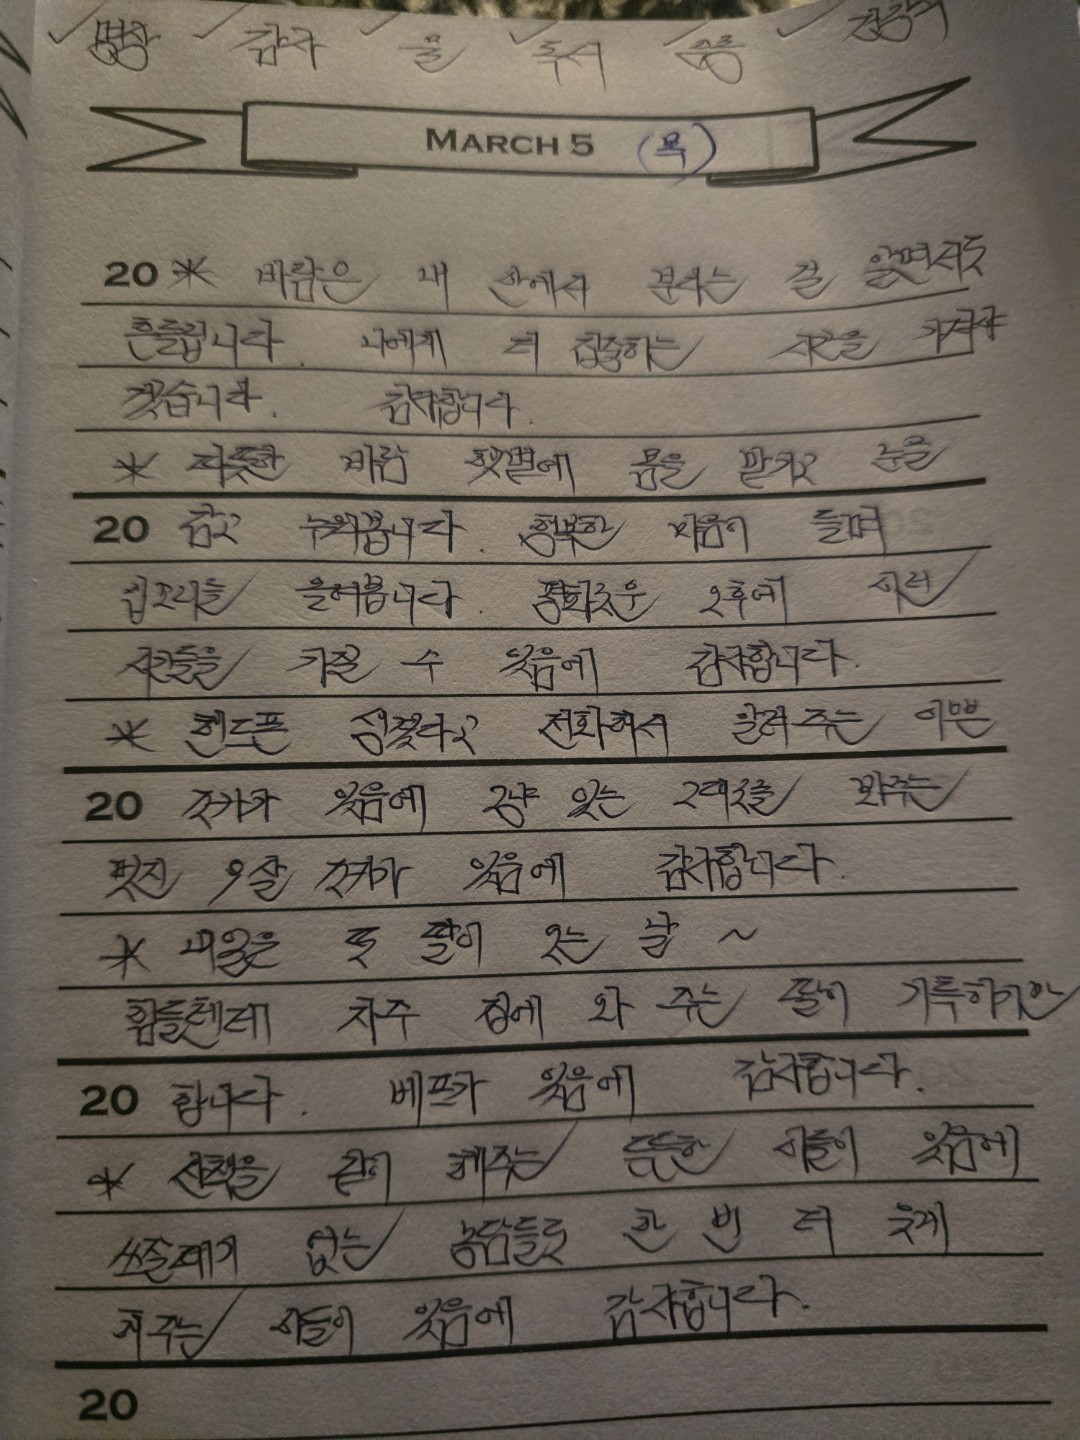 명상 감사 물 독서 운동 긍정어
MARCH 5 (목)
20 * 바람은 내 안에서 분다는 걸 알면서도
흔들립니다. 나에게 더 집중하는 시간을 가져야
겠습니다. 감사합니다.
* 따뜻한 바람 햇볕에 몸을 맡기고 눈을
20 감고 누워봅니다. 행복한 마음이 들며
콧노리를 들어봅니다. 평화로운 오후에 이런
시간들을 가질 수 있음에 감사합니다.
* 핸드폰 설정다고 전화해서 알려주는 이쁜
20 조카가 있음에 고양 있는 고려를 봐주는
멋진 9살 조카가 있음에 감사합니다.
* 내일은 또 딸이 오는 날 ~
힘들텐데 자주 집에 와 주는 딸이 기특하기만
20 합니다. 베프가 있음에 감사합니다.
* 산책을 같이 해주는 든든한 아들이 있음에
쓰잘데기 없는 농담들로 한 번 더 웃게
해주는 아들이 있음에 감사합니다.
20